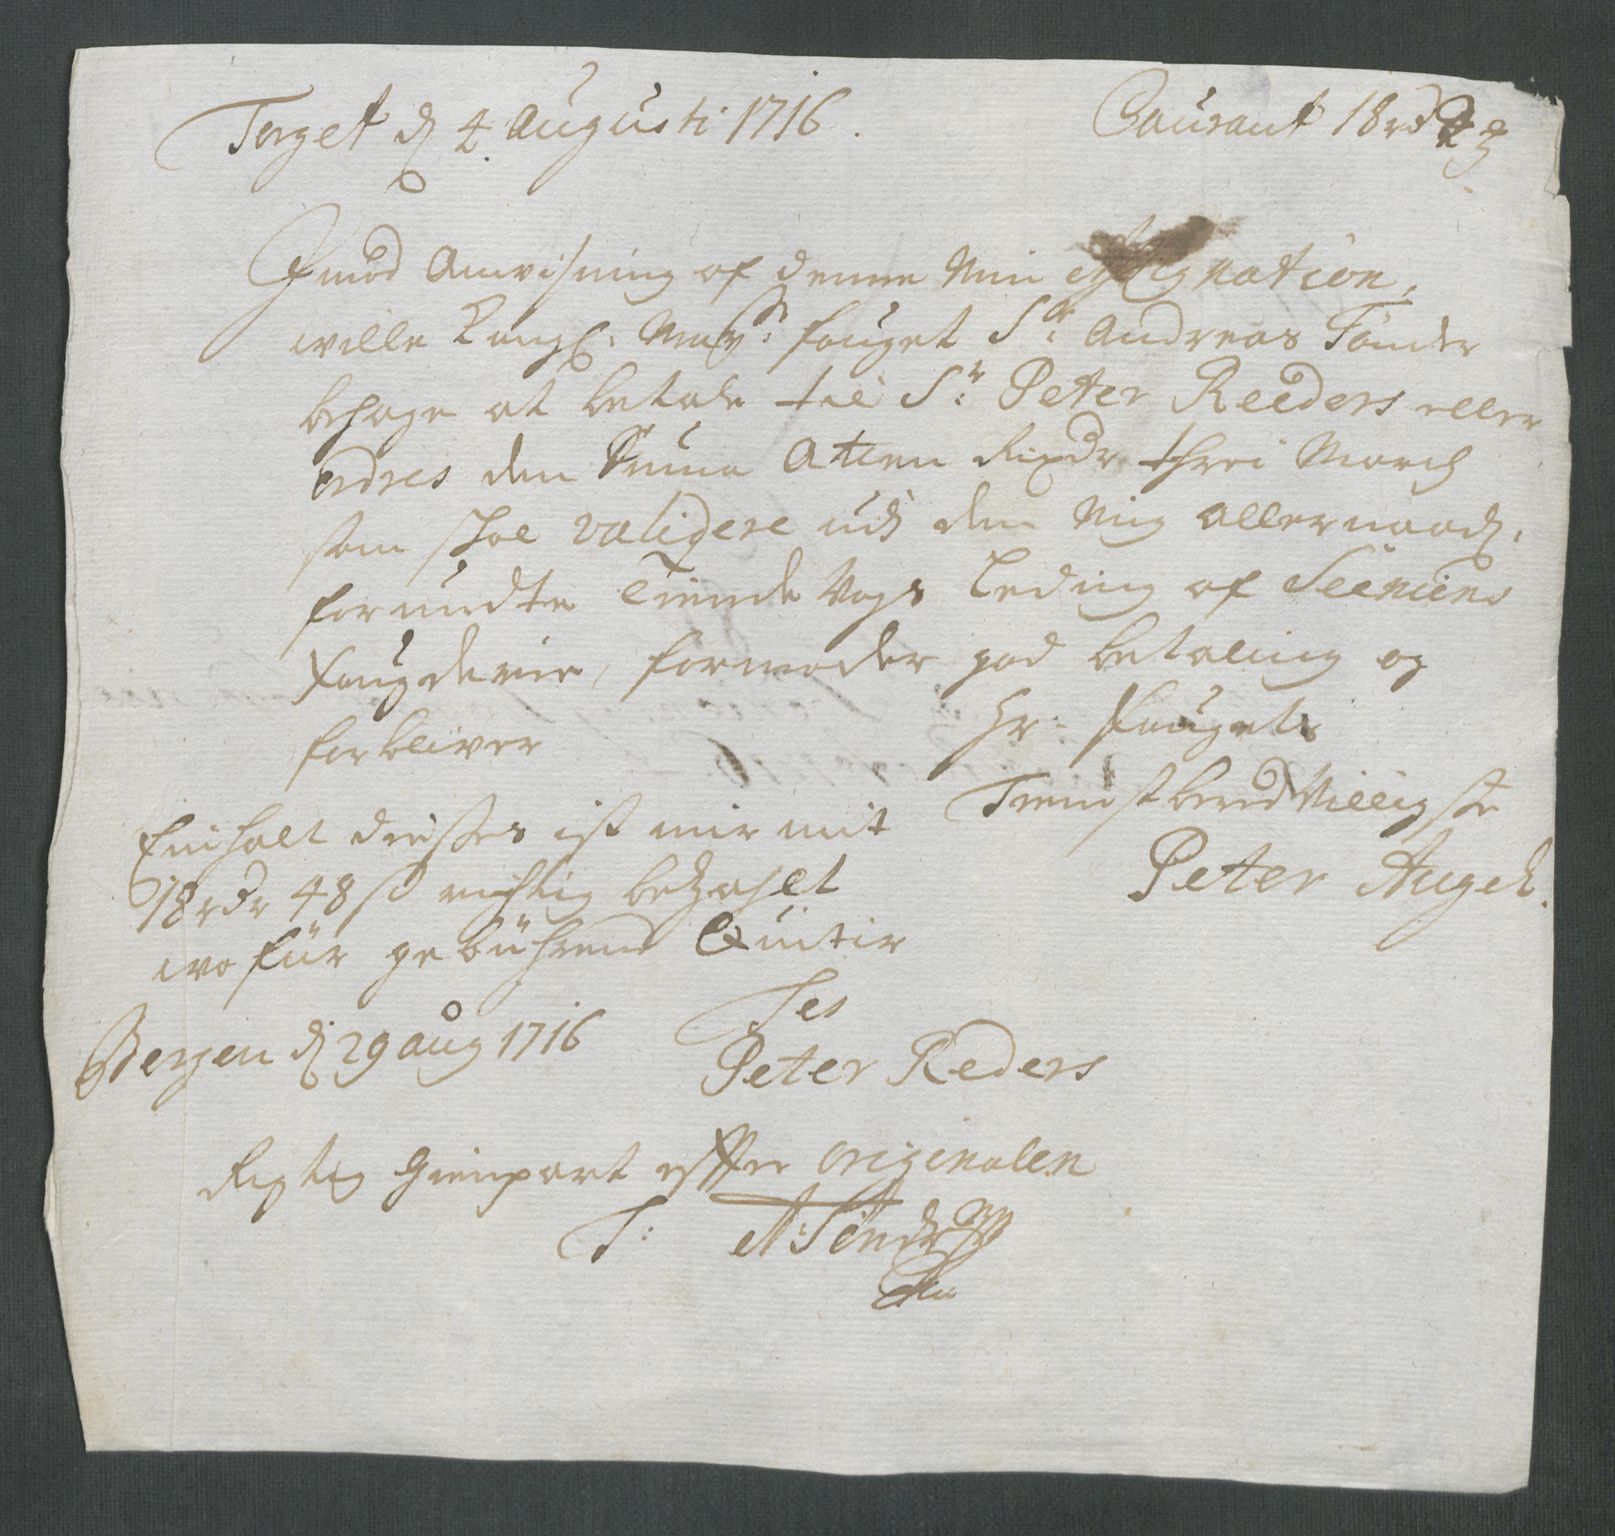 Torget d 4 Augusti 1716. Courant 18 rd 3
Imod Anvisning af denne Min Assignation,
wille Kongl: May: fouget Sr: Andreas Tønder
behage at betale til Sr: Peter Reeders eller
ordres den Suma Atten Rixdr threi March
som skal validere udi den Mig allernaad:
forundte Tiende Vogs Leding af Seeniens
Fougderie, formoder god betaling og
forbliver Hr: Fougets
Tienstbered Villigste
Peter Angel.
Einhalt dieses ist mir mit
18 rdr 48 s richtig bezahlt
wofür gebührend Quitir
Bergen d 29 aug 1716
Peter Reders
Rigtig Gienpart effter originalen
T: A: Tønder